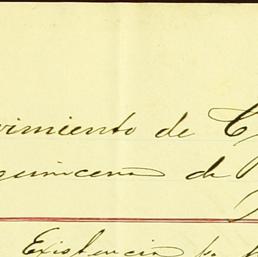 vimiento de C
quincena de
Existencia